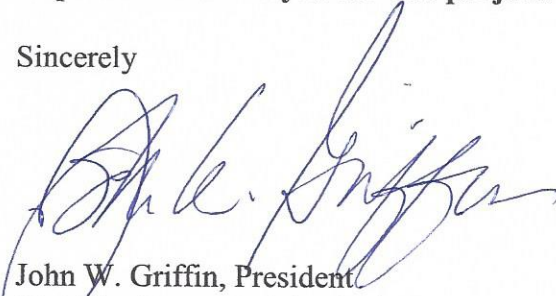 Sincerely
John W. Griffin
John W. Griffin, President